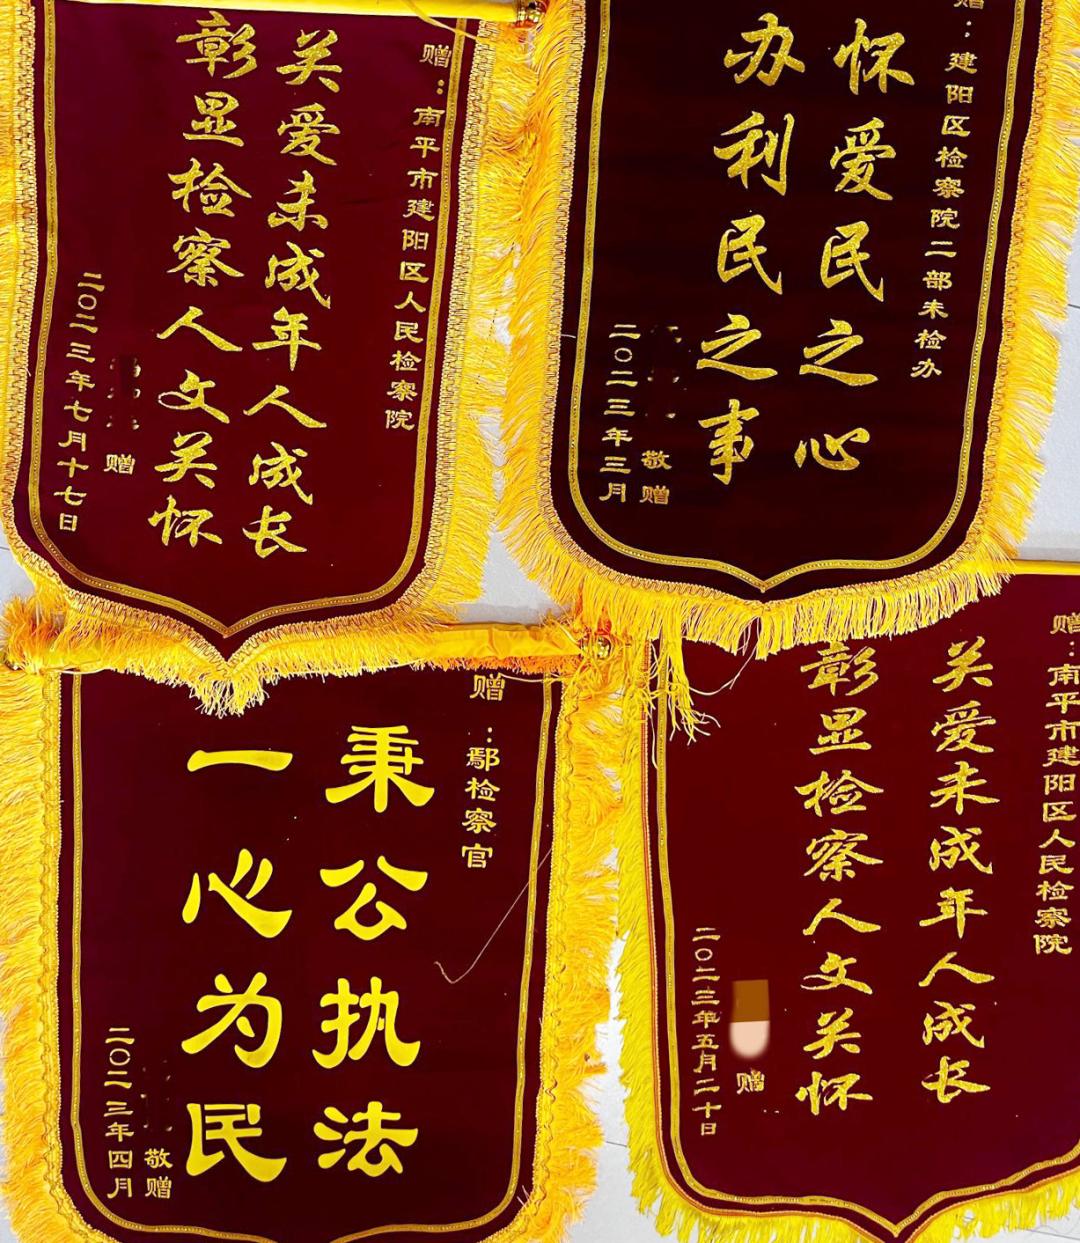 赠：南平市建阳区人民检察院
关爱未成年人成长
彰显检察人文关怀
赠
二〇二三年七月十七日
赠：建阳区检察院二部未检办
怀爱民之心
办利民之事
敬赠
二〇二三年三月
赠：鄢检察官
秉公执法
一心为民
敬赠
二〇二三年四月
赠：南平市建阳区人民检察院
关爱未成年人成长
彰显检察人文关怀
赠
二〇二三年五月二十日